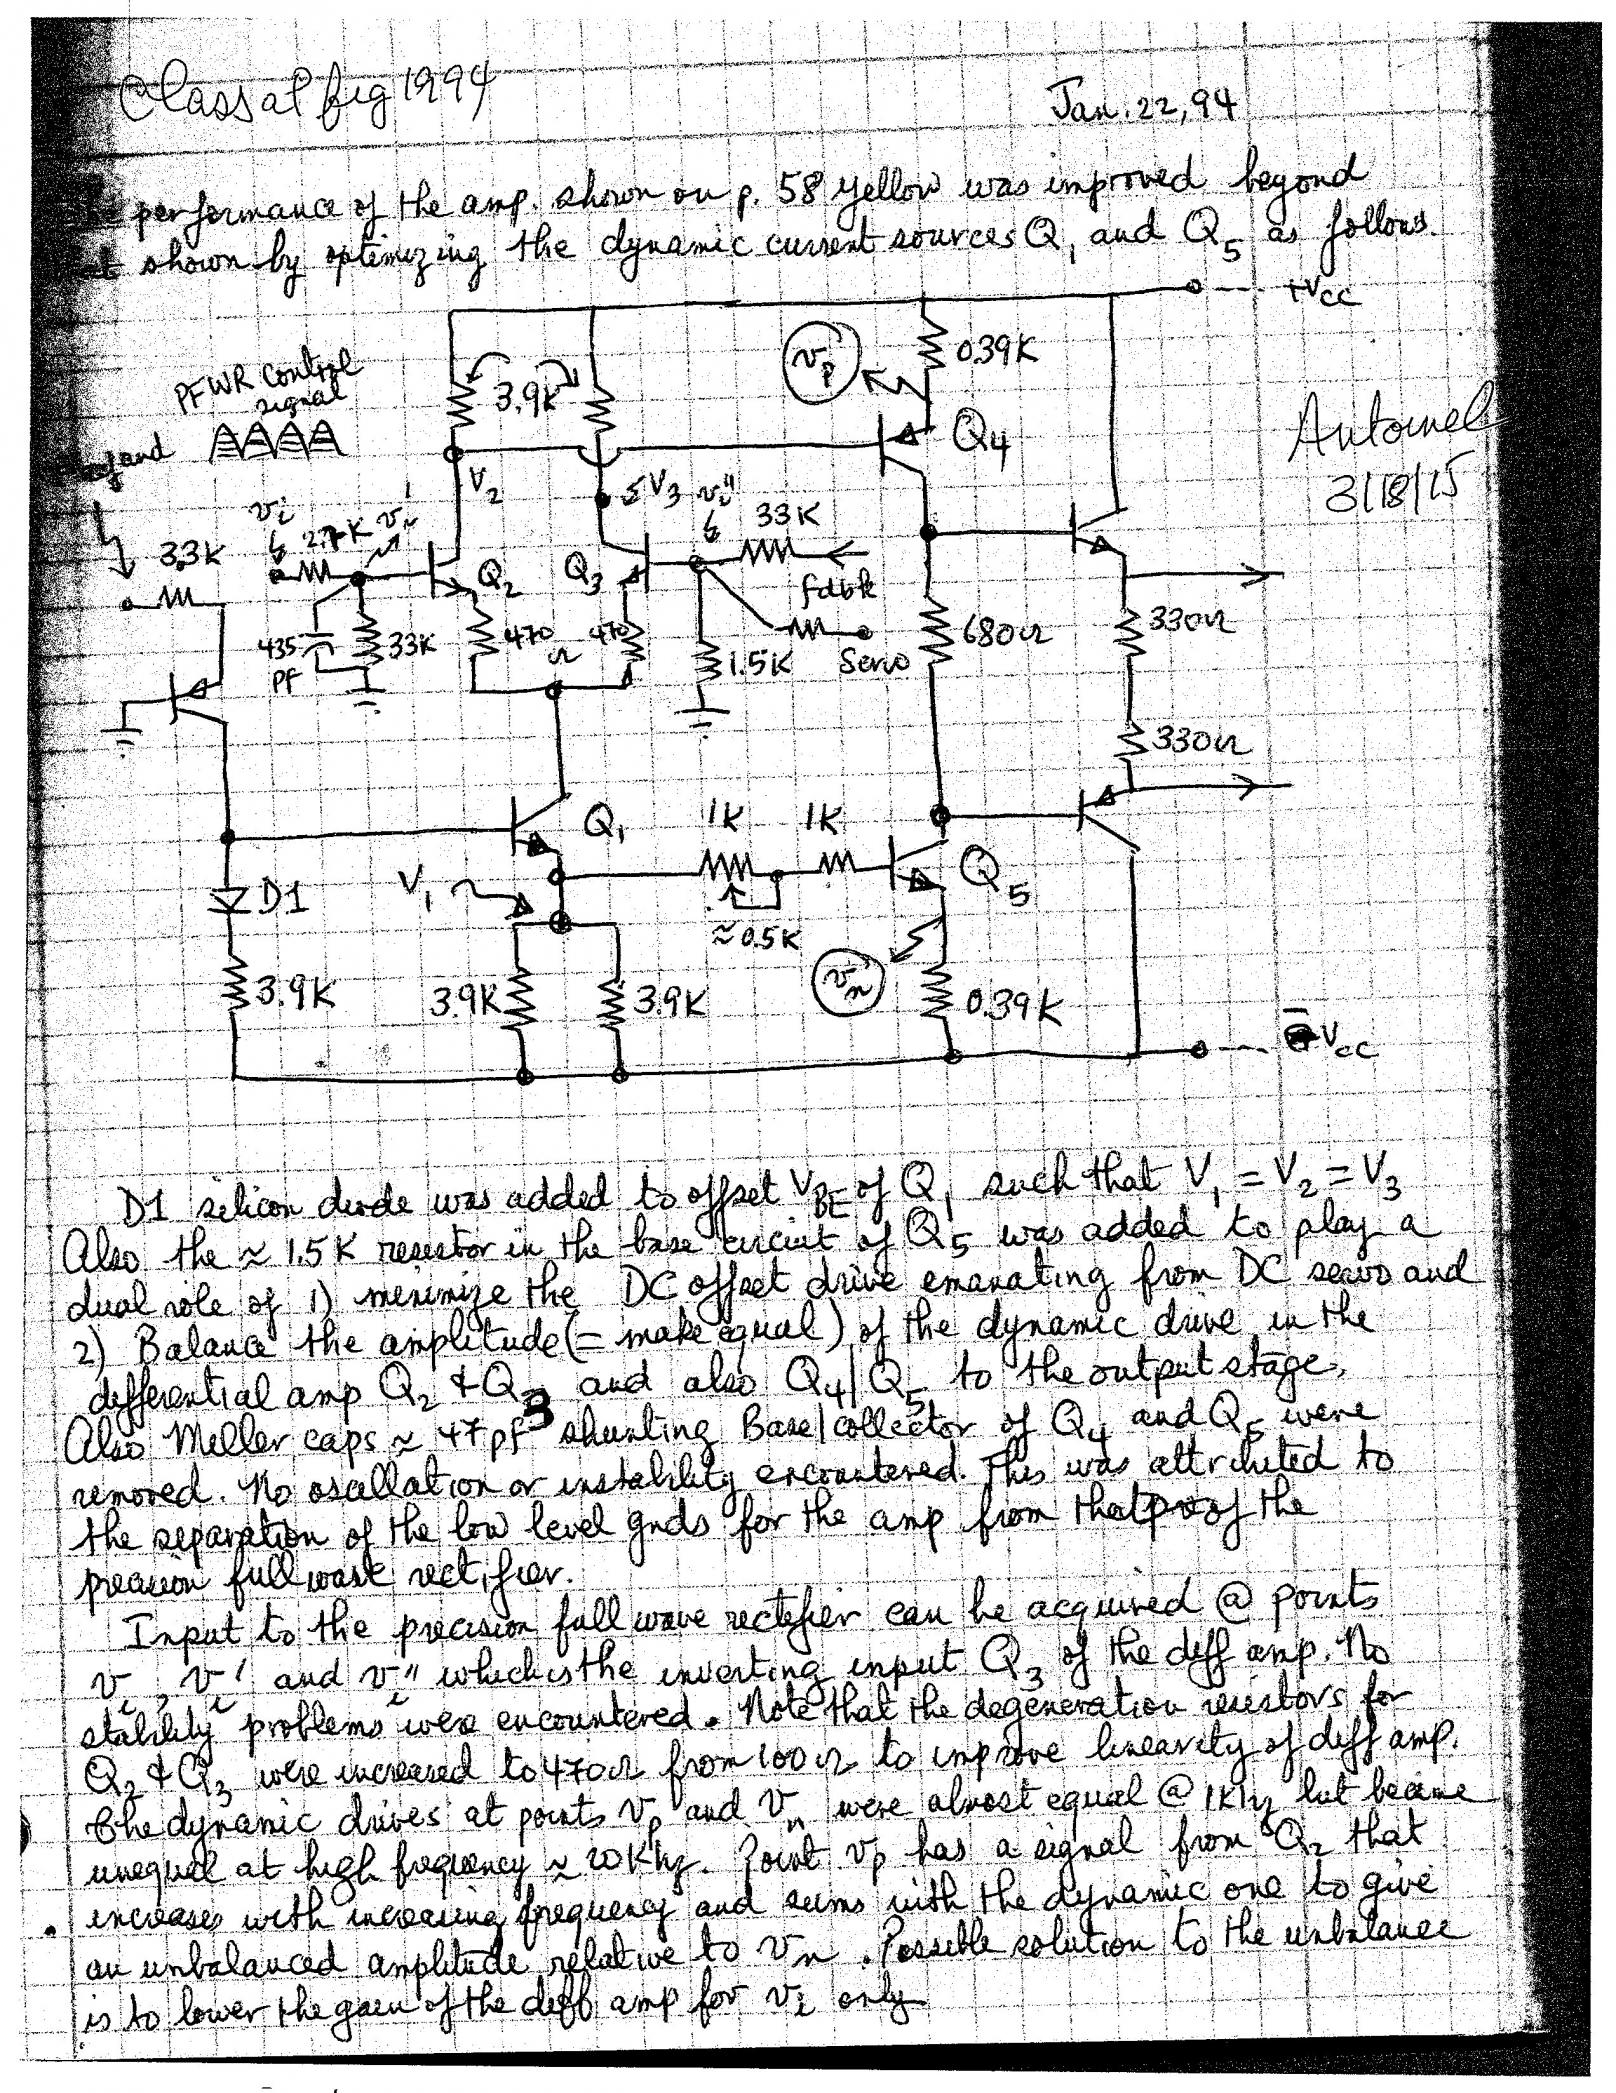 Class at fig 1994
Jan. 22, 94
performance of the amp. shown on p. 58 yellow was improved beyond
shown by optimizing the dynamic current sources Q1 and Q5 as follows.
+Vcc
0.39K
vp
PFWR Control
signal
3.9K
Q4
and
V2
V3 vi''
33K
3/18/15
vi
2.7K vi'
3.3K
Q2
Q3
fdbk
435
PF
33K
470
Ω
470
1.5K
Servo
680Ω
330Ω
330Ω
Q1
1K
1K
D1
V1
Q5
≈0.5K
vn
3.9K
3.9K
3.9K
0.39K
-Vcc
D1 silicon diode was added to offset VBE of Q1 such that V1 = V2 = V3
Also the ≈ 1.5K resistor in the base circuit of Q5 was added to play a
dual role of 1) minimize the DC offset drive emanating from DC servo and
2) Balance the amplitude (= make equal) of the dynamic drive in the
differential amp Q2 & Q3 and also Q4/Q5 to the output stage.
Also Miller caps ≈ 47pf shunting Base/collector of Q4 and Q5 were
removed. No oscillation or instability encountered. This was attributed to
the separation of the low level gnds for the amp from that of the
precision full wave rectifier.
Input to the precision full wave rectifier can be acquired @ points
vi, vi' and vi'' which is the inverting input Q3 of the diff amp. No
stability problems were encountered. Note that the degeneration resistors for
Q2 & Q3 were increased to 470Ω from 100Ω to improve linearity of diff amp.
The dynamic drives at points vp and vn were almost equal @ 1KHz but became
unequal at high frequency ≈ 20KHz. Point vp has a signal from Q2 that
increases with increasing frequency and sums with the dynamic one to give
an unbalanced amplitude relative to vn. Possible solution to the unbalance
is to lower the gain of the diff amp for vi only